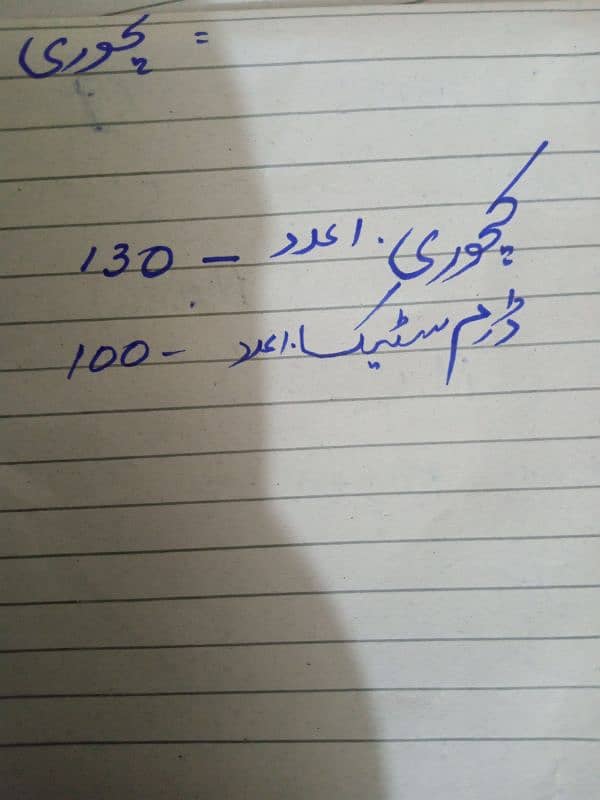 کچوری =
کچوری . ۱ عدد - 130
ڈرم سٹیک . ۱ عدد - 100